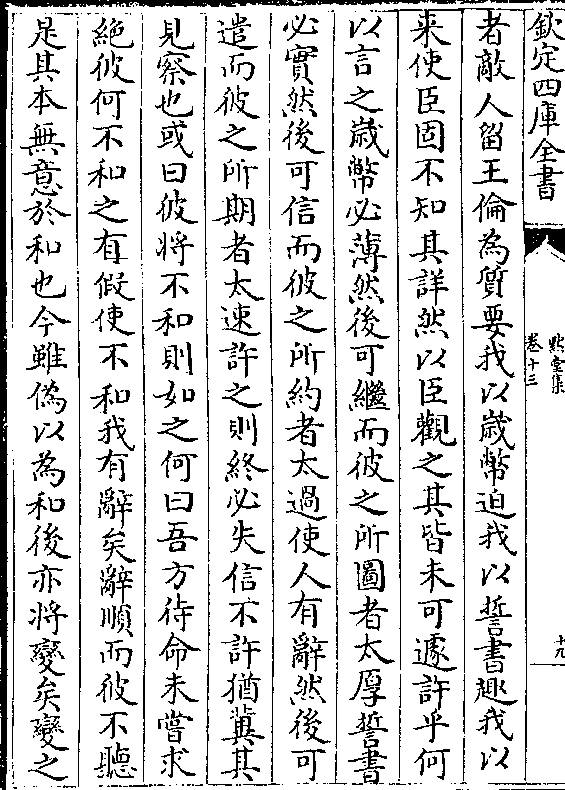 欽定四庫全書
默堂集
卷十三
十九
者敵人留王倫為質要我以歲幣迫我以誓書趣我以
来使臣固不知其詳然以臣觀之其皆未可遽許乎何
以言之歲幣必薄然後可繼而彼之所圖者太厚誓書
必實然後可信而彼之所約者太過使人有辭然後可
遣而彼之所期者太速許之則終必失信不許猶冀其
見察也或曰彼将不和則如之何曰吾方待命未嘗求
絶彼何不和之有假使不和我有辭矣辭順而彼不聽
是其本無意於和也今雖偽以為和後亦将變矣變之